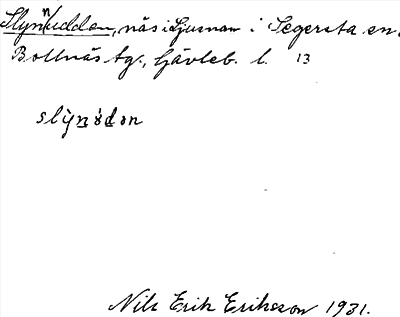 Slynnudden, näs i Ljusnan i Segersta en.
Bollnäs tg., Gävleb. l. 13
slỳnùdən
Nils Erik Eriksson 1931.